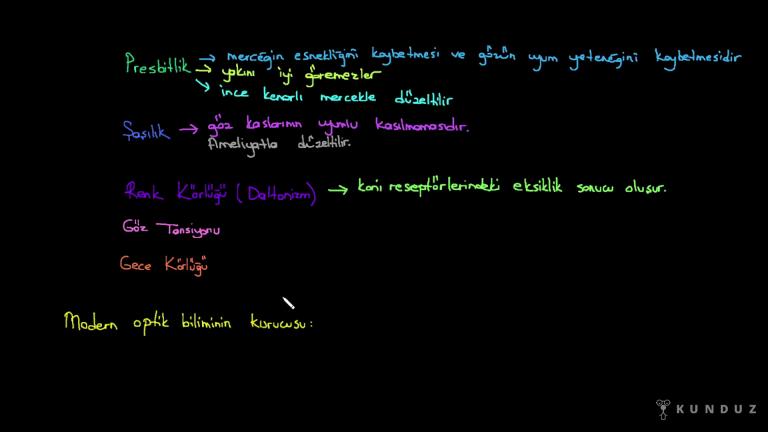 Presbitlik → merceğin esnekliğini kaybetmesi ve gözün uyum yeteneğini kaybetmesidir
→ yakını iyi göremezler
→ ince kenarlı mercekle düzeltilir
Şaşılık → göz kaslarının uyumlu kasılmamasıdır.
Ameliyatla düzeltilir.
Renk Körlüğü (Daltonizm) → koni reseptörlerindeki eksiklik sonucu oluşur.
Göz Tansiyonu
Gece Körlüğü
Modern optik biliminin kurucusu:
KUNDUZ